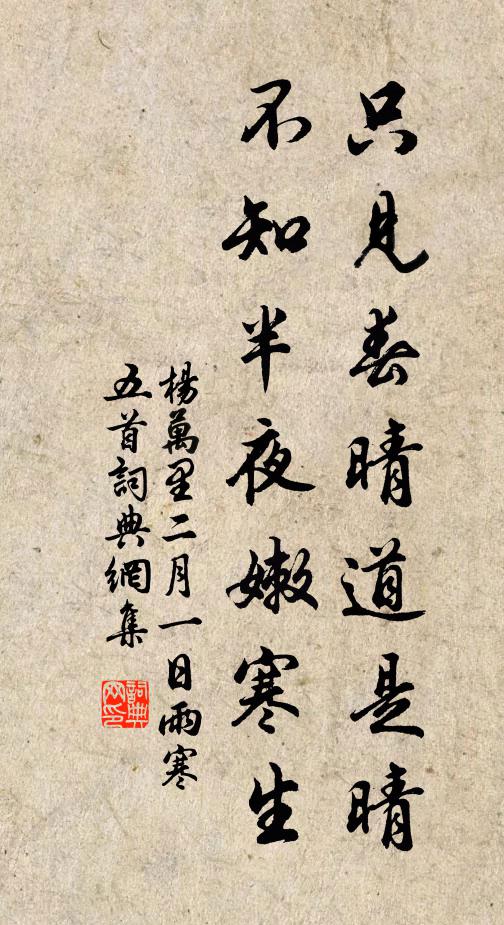 只見春晴道是晴
不知半夜嫩寒生
楊萬里二月一日雨寒
五首詞典網集
詞典網印